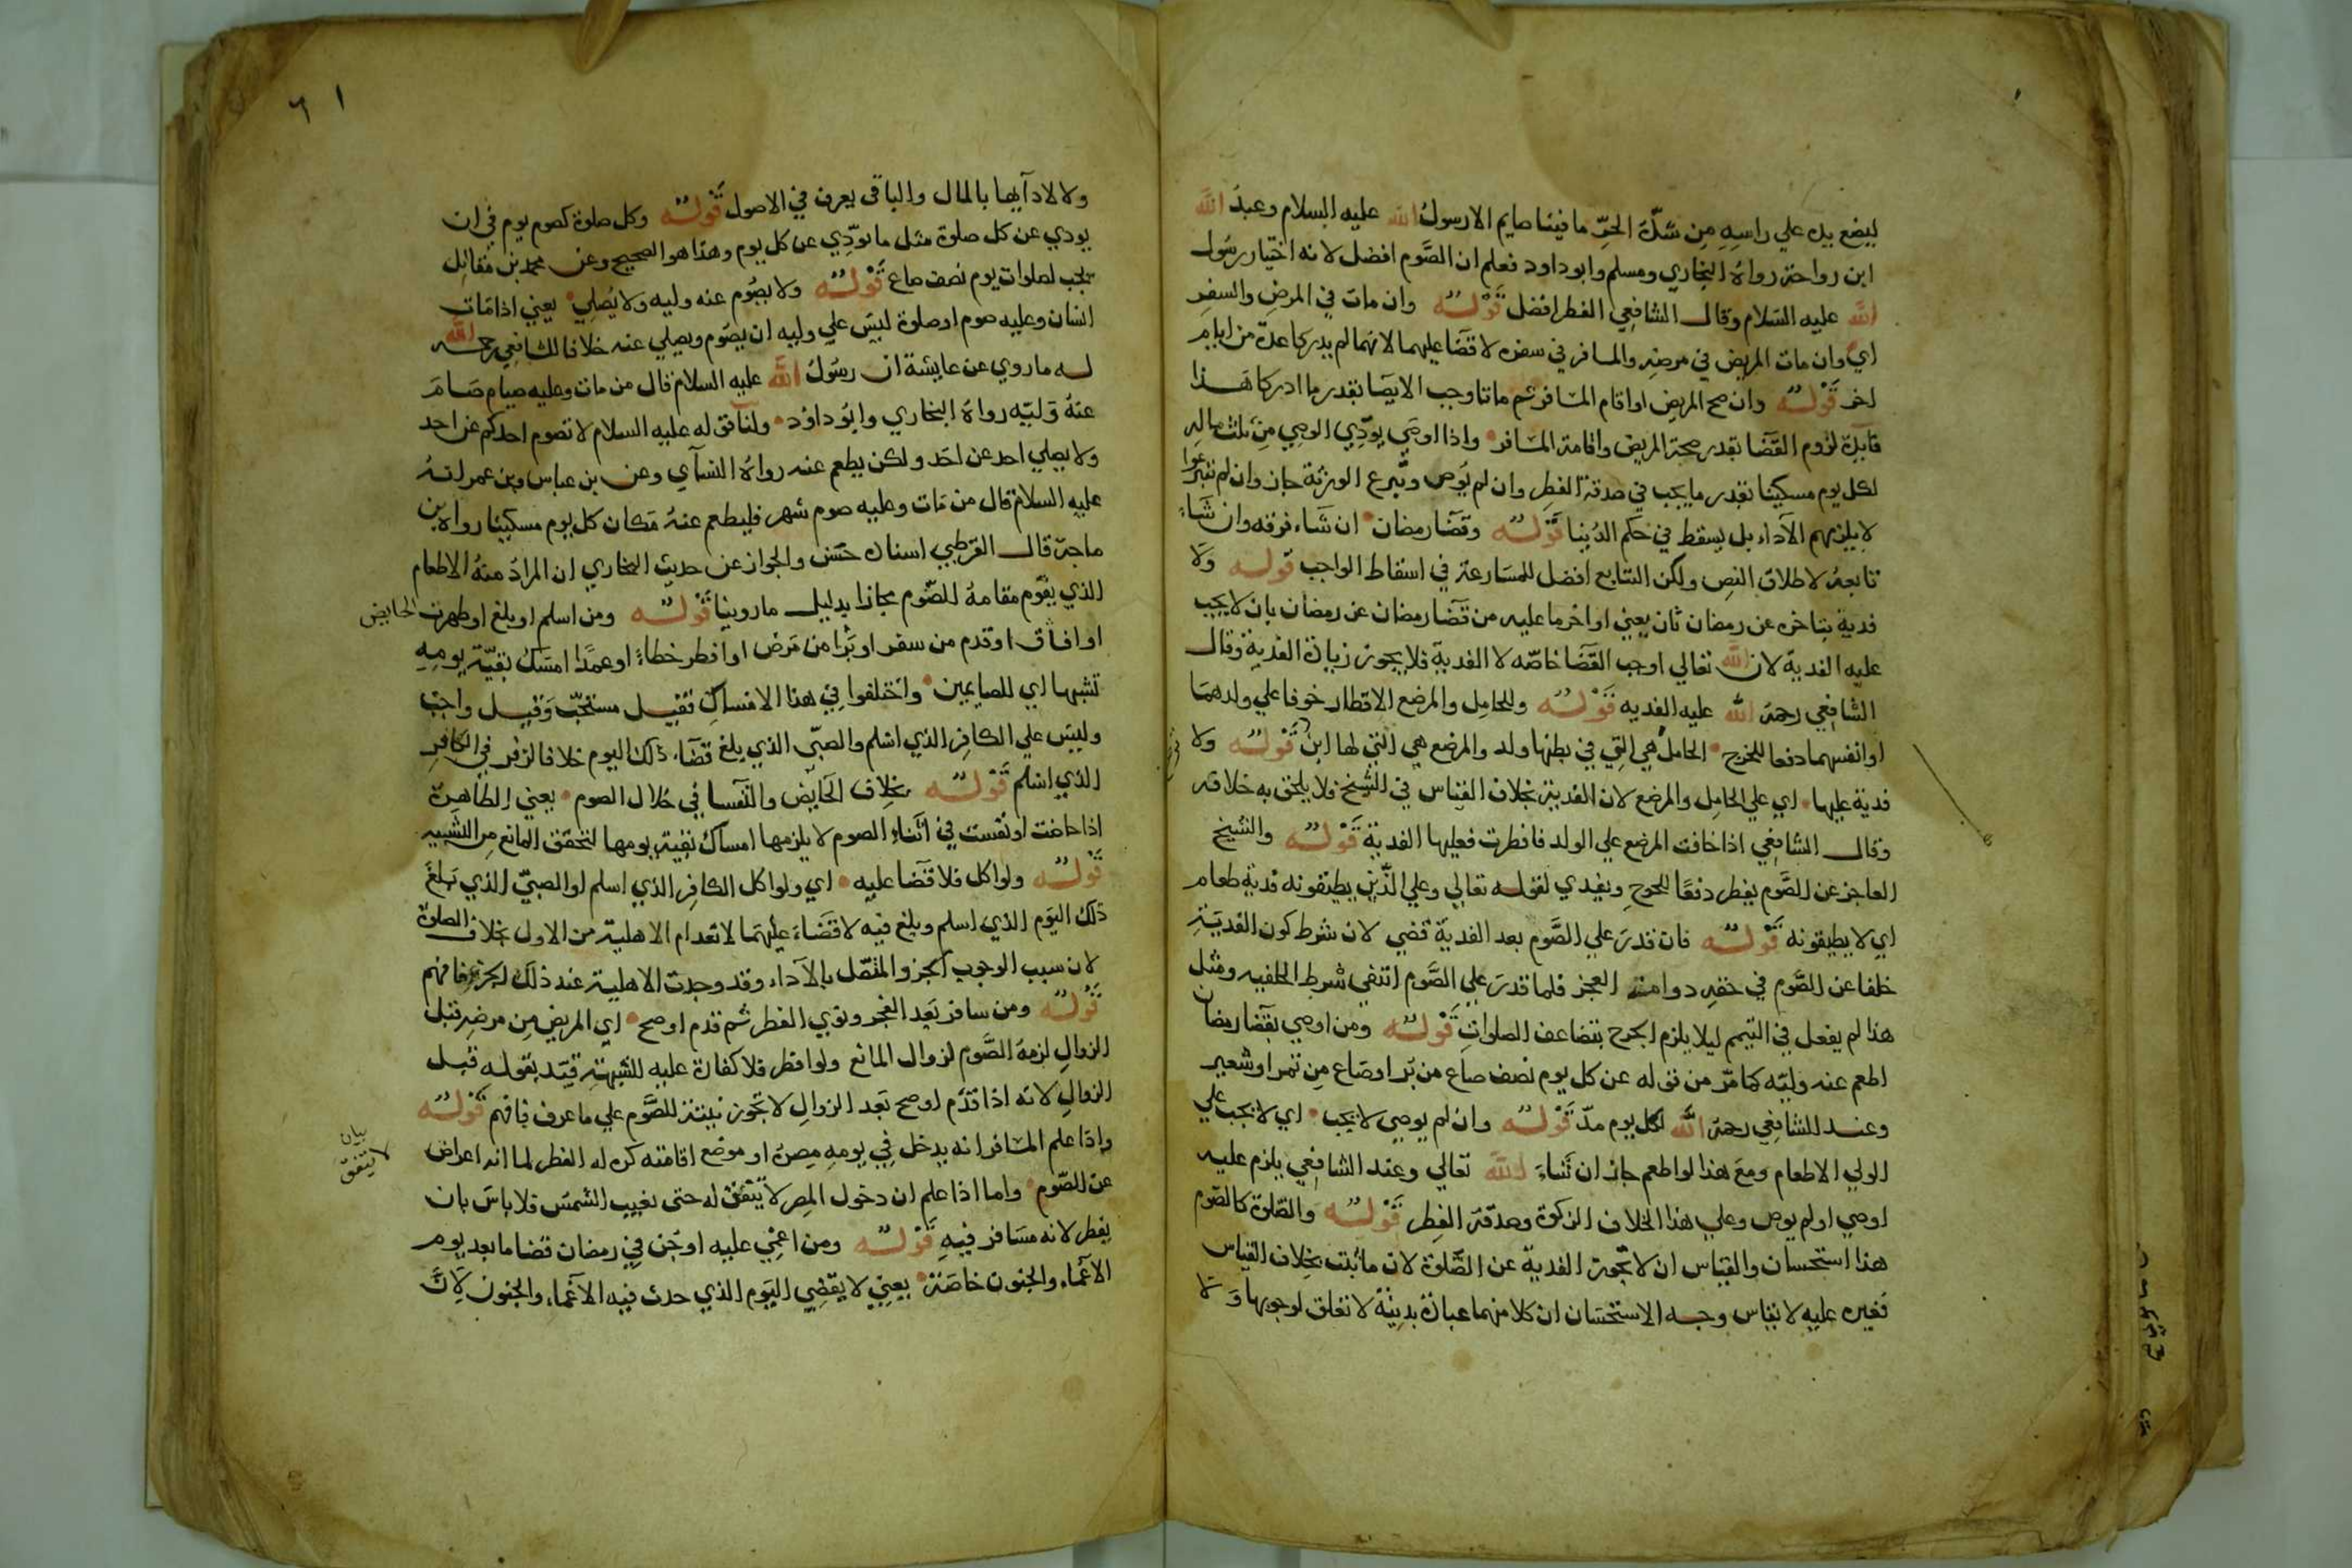 ليضع يده علي راسه من شدة الحر ما فينا صايم الا رسول الله عليه السلام وعبد الله
ابن رواحة رواه البخاري ومسلم وابو داود فعلم ان الصوم افضل لانه اختيار رسول
الله عليه السلام وقال الشافعي الفطر افضل قوله وان مات في المرض والسفر
اي وان مات المريض في مرضه والمسافر في سفره لا قضا عليهما لانهما لم يدركا عدة من ايام
اخر قوله وان صح المريض او اقام المسافر ثم ماتا وجب الايصا بقدر ما ادركا هذا
فايدة لزوم القضا بقدر صحة المريض واقامة المسافر واذا اوصي يؤدي الوصي من ثلث ماله
لكل يوم مسكينا بقدر ما يجب في صدقة الفطر وان لم يوص وتبرع الورثة جاز وان لم يتبرعوا
لا يلزمهم الآداء بل يسقط في حكم الدنيا قوله وقضا رمضان ان شاء فرقه وان شاء
تابعه لاطلاق النص ولكن التتابع افضل للمسارعة في اسقاط الواجب قوله ولا
فدية بتاخره عن رمضان ثان يعني لو اخر ما عليه من قضا رمضان عن رمضان بان لا يجب
عليه الفدية لان الله تعالي اوجب القضا خاصه لا الفدية فلا يجوز زيادة الفدية وقال
الشافعي رحمه الله عليه الفديه قوله وللحامل والمرضع الافطار خوفا علي ولدهما
او انفسهما دفعا للحرج الحامل هي التي في بطنها ولد والمرضع هي التي لها ابن قوله ولا
فدية عليها اي علي الحامل والمرضع لان الفدية بخلاف القياس في الشيخ فلا يلحق به خلافه
وقال الشافعي اذا خافت المرضع علي الولد فافطرت فعليها الفدية قوله والشيخ
العاجز عن الصوم يفطر دفعا للحرج ويفدي لقوله تعالي وعلي الذين يطيقونه فدية طعام
اي لا يطيقونه قوله فان قدر علي الصوم بعد الفدية قضي لان شرط كون الفدية
خلفا عن الصوم في حقه دوام العجز فلما قدر علي الصوم انتفي شرط الخلفيه ومثل
هذا لم يفعل في التيمم ليلا يلزم الحرج بتضاعف الصلوات قوله ومن اوصي بقضا رمضان
اطعم عنه وليه كما مر من قوله عن كل يوم نصف صاع من بر او صاع من تمر او شعير
وعند الشافعي رحمه الله لكل يوم مد قوله وان لم يوصي لا يجب اي لا يجب علي
الولي الاطعام ومع هذا لو اطعم جاز ان شاء الله تعالي وعند الشافعي يلزم عليه
اوصي او لم يوص وعلي هذا الخلاف الزكوة وصدقة الفطر قوله والصلاة كالصوم
هذا استحسان والقياس ان لا تجوز الفدية عن الصلوة لان ما ثبت بخلاف القياس
فغيره عليه لا يقاس وجه الاستحسان ان كلا منهما عبادة بدنية لا تعلق لوجوبها ولا
٦١
ولا لادآيها بالمال والباقي يعرف في الاصول قوله وكل صلوة كصوم يوم في ان
يودي عن كل صلوة مثل ما يؤدي عن كل يوم وهذا هو الصحيح وعن محمد بن مقاتل
يجب لصلوات يوم نصف صاع قوله ولا يصوم عنه وليه ولا يصلي يعني اذا مات
انسان وعليه صوم او صلوة ليس علي وليه ان يصوم ويصلي عنه خلافا للشافعي رحمه الله
له ما روي عن عايشة ان رسول الله عليه السلام قال من مات وعليه صيام صام
عنه وليه رواه البخاري وابو داود ولنا قوله عليه السلام لا تصوم احدكم عن احد
ولا يصلي احد عن احد ولكن يطعم عنه رواه النسآي وعن بن عباس وبن عمر انه
عليه السلام قال من مات وعليه صوم شهر فليطعم عنه مكان كل يوم مسكينا رواه بن
ماجة قال القرطبي اسناده حسن والجواز عن حديث البخاري ان المراد منه الاطعام
الذي يقوم مقامه للصوم مجازا بدليل ما روينا قوله ومن اسلم او بلغ او طهرت الحايض
او افاق او قدم من سفر او برا من مرض او افطر خطاء او عمدا امسك بقية يومه
تشبها اي للصايمين واختلفوا في هذا الامساك فقيل مستحب وقيل واجب
وليس علي الكافر الذي اسلم والصبي الذي بلغ قضاء ذلك اليوم خلافا لزفر في الكافر
الذي اسلم قوله بخلاف الحايض والنفسا في خلال الصوم يعني الطاهرة
اذا حاضت او نفست في اثناء الصوم لا يلزمها امساك بقية يومها لتحقق المانع من التشبيه
قوله ولو اكل فلا قضا عليه اي ولو اكل الكافر الذي اسلم او الصبي الذي بلغ
ذلك اليوم الذي اسلم وبلغ فيه لا قضاء عليهما لانعدام الاهلية من الاول بخلاف الصلوة
لان سبب الوجوب الجزو المتصل بالآداء وقد وجدت الاهلية عند ذلك الجزء فافهم
قوله ومن سافر بعد الفجر ونوي الفطر ثم قدم او صح اي المريض من مرضه قبل
الزوال لزمه الصوم لزوال المانع ولو افطر فلا كفارة عليه للشبهة قيد بقوله قبل
الزوال لانه اذا قدم او صح بعد الزوال لا تجوز نيته للصوم علي ما عرف فافهم قوله
واذا علم المسافر انه يدخل في يومه مصره او موضع اقامته كره له الفطر لما انه اعراض
عن الصوم واما اذا علم ان دخول المصر لا يتفق له حتى تغيب الشمس فلا باس بان
يفطر لانه مسافر فيه قوله ومن اغمي عليه او جن في رمضان قضا ما بعد يوم
الاغماء والجنون خاصة يعني لا يقضي اليوم الذي حدث فيه الآغماء والجنون لان
بيان
لا يتفق